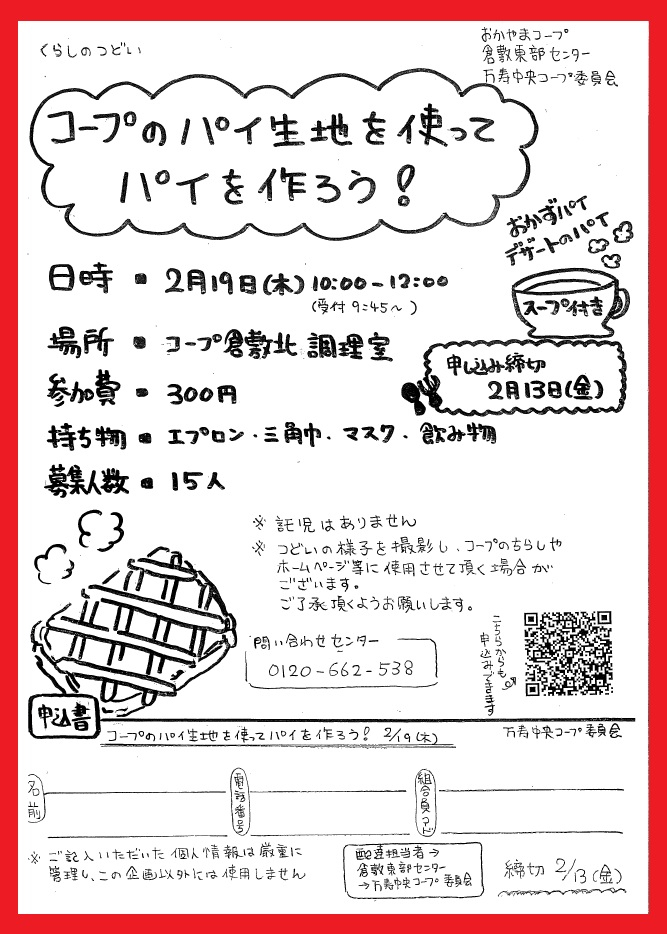 くらしのつどい
おかやまコープ
倉敷東部センター
万寿中央コープ委員会
コープのパイ生地を使って
パイを作ろう!
おかずパイ
デザートのパイ
スープ付き
日時 ・ 2月19日(木) 10:00-12:00
(受付 9:45~ )
場所 ・ コープ倉敷北 調理室
申し込み締切
2月13日(金)
参加費 ・ 300円
持ち物 ・ エプロン・三角巾・マスク・飲み物
募集人数 ・ 15人
※ 託児はありません
※ つどいの様子を撮影し、コープのちらしや
ホームページ等に使用させて頂く場合が
ございます。
ご了承頂くようお願いします。
問い合わせセンター
0120-662-538
こちらからも
申込みできます
申込書
コープのパイ生地を使ってパイを作ろう! 2/19(木)
万寿中央コープ委員会
名前
電話番号
組合員コード
※ ご記入いただいた個人情報は厳重に
管理し、この企画以外には使用しません
配達担当者→
倉敷東部センター
→万寿中央コープ委員会
締切 2/13(金)